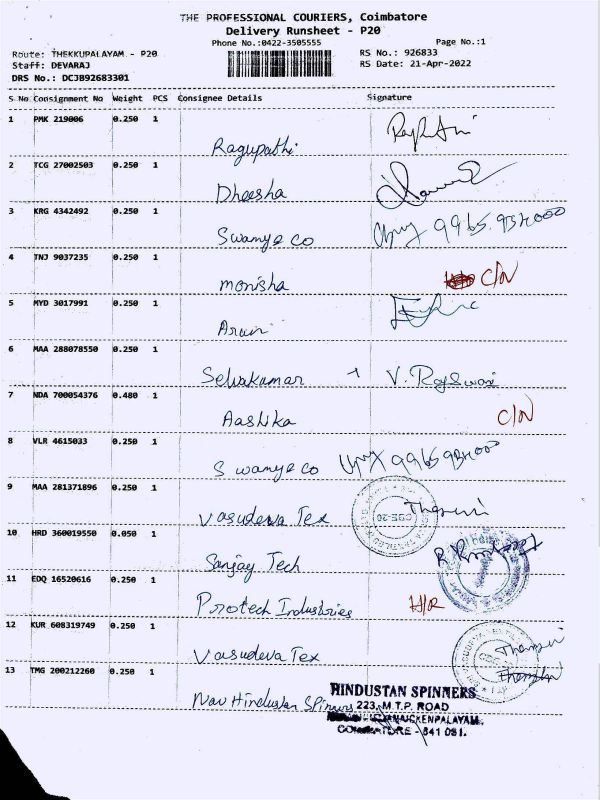 THE PROFESSIONAL COURIERS, Coimbatore
Delivery Runsheet - P20
Phone No.:0422-3505555
Page No.:1
Route: THEKKUPALAYAM - P20
RS No.: 926833
Staff: DEVARAJ
RS Date: 21-Apr-2022
DRS No.: DCJB92683301
S No Consignment No Weight PCS Consignee Details Signature
1 PMK 219006 0.250 1
Ragupathi
2 TCG 27002503 0.250 1
Dheesha
3 KRG 4342492 0.250 1
Swamy & co
4 TNJ 9037235 0.250 1
monisha C/N
5 MYD 3017991 0.250 1
Arun
6 MAA 288078550 0.250 1
Selvakumar V. Rajswari
7 NDA 700054376 0.480 1
Aashika C/N
8 VLR 4615033 0.250 1
Swamy & co
9 MAA 281371896 0.250 1
Vasudeva Tex
10 HRD 360019550 0.050 1
Sanjay Tech
11 EDQ 16520616 0.250 1
Protech Industries H/R
12 KUR 608319749 0.250 1
Vasudeva Tex
13 TMG 200212260 0.250 1
Nav Hindustan Spinners
HINDUSTAN SPINNERS
223, M.T.P. ROAD
COIMBATORE - 641 031.